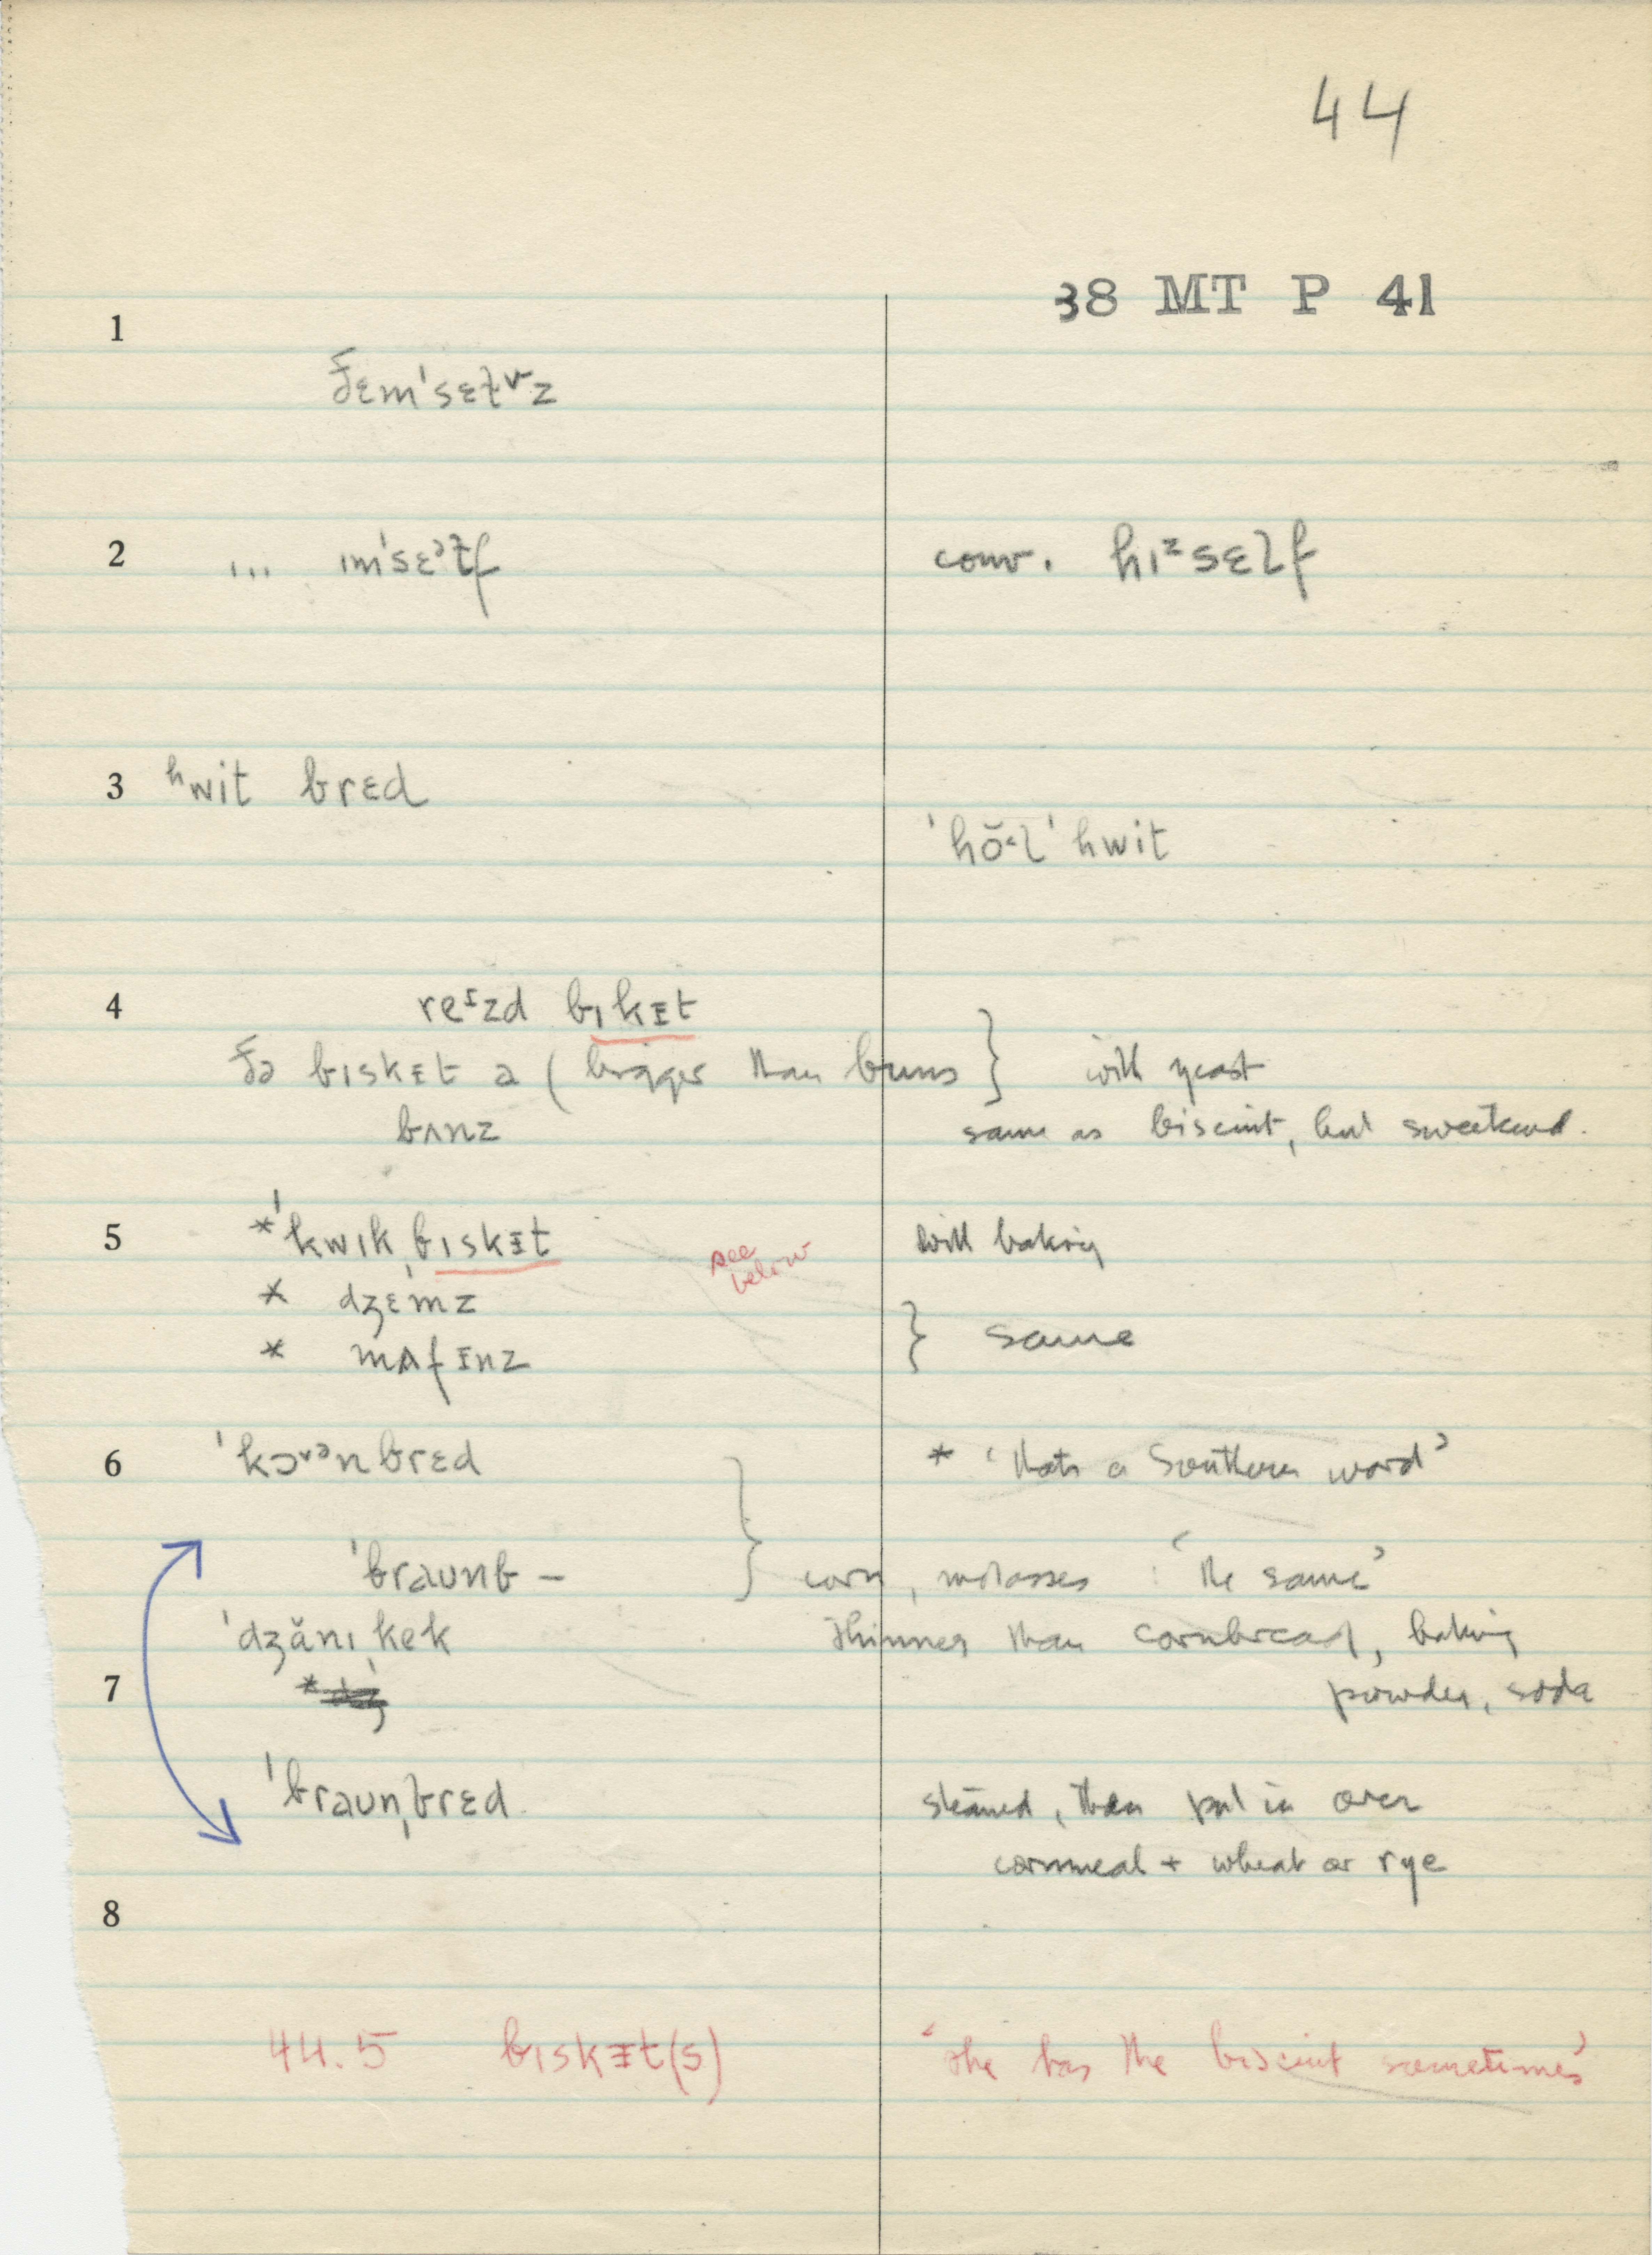 44
38 MT P 41
1
ðɛm'sɛɫvz
2 ... ɪm'sɛᵊɫf conv. hɪᶻsɛlf
3 ʰwit brɛd
'hŏ˂l 'hwit
4 reᶦzd bɪkᵻt
ðə bɪskᵻt a (bigger than buns } with yeast
bʌnz same as biscuit, but sweetened.
5 *'kwɪkˌbɪskᵻt see below with baking
* dʒɛmz
* mʌfᵻnz } same
6 'kɔʳᵊnbrɛd * 'thats a Southern word'
'braʊnb – } corn, molasses : 'the same'
'dʒănɪˌkek thinner than cornbread, baking
7 * powder, soda
'braʊnˌbrɛd. steamed, then put in oven
cornmeal + wheat or rye
8
44.5 bɪskᵻt(s) 'she has the biscuit sometimes'